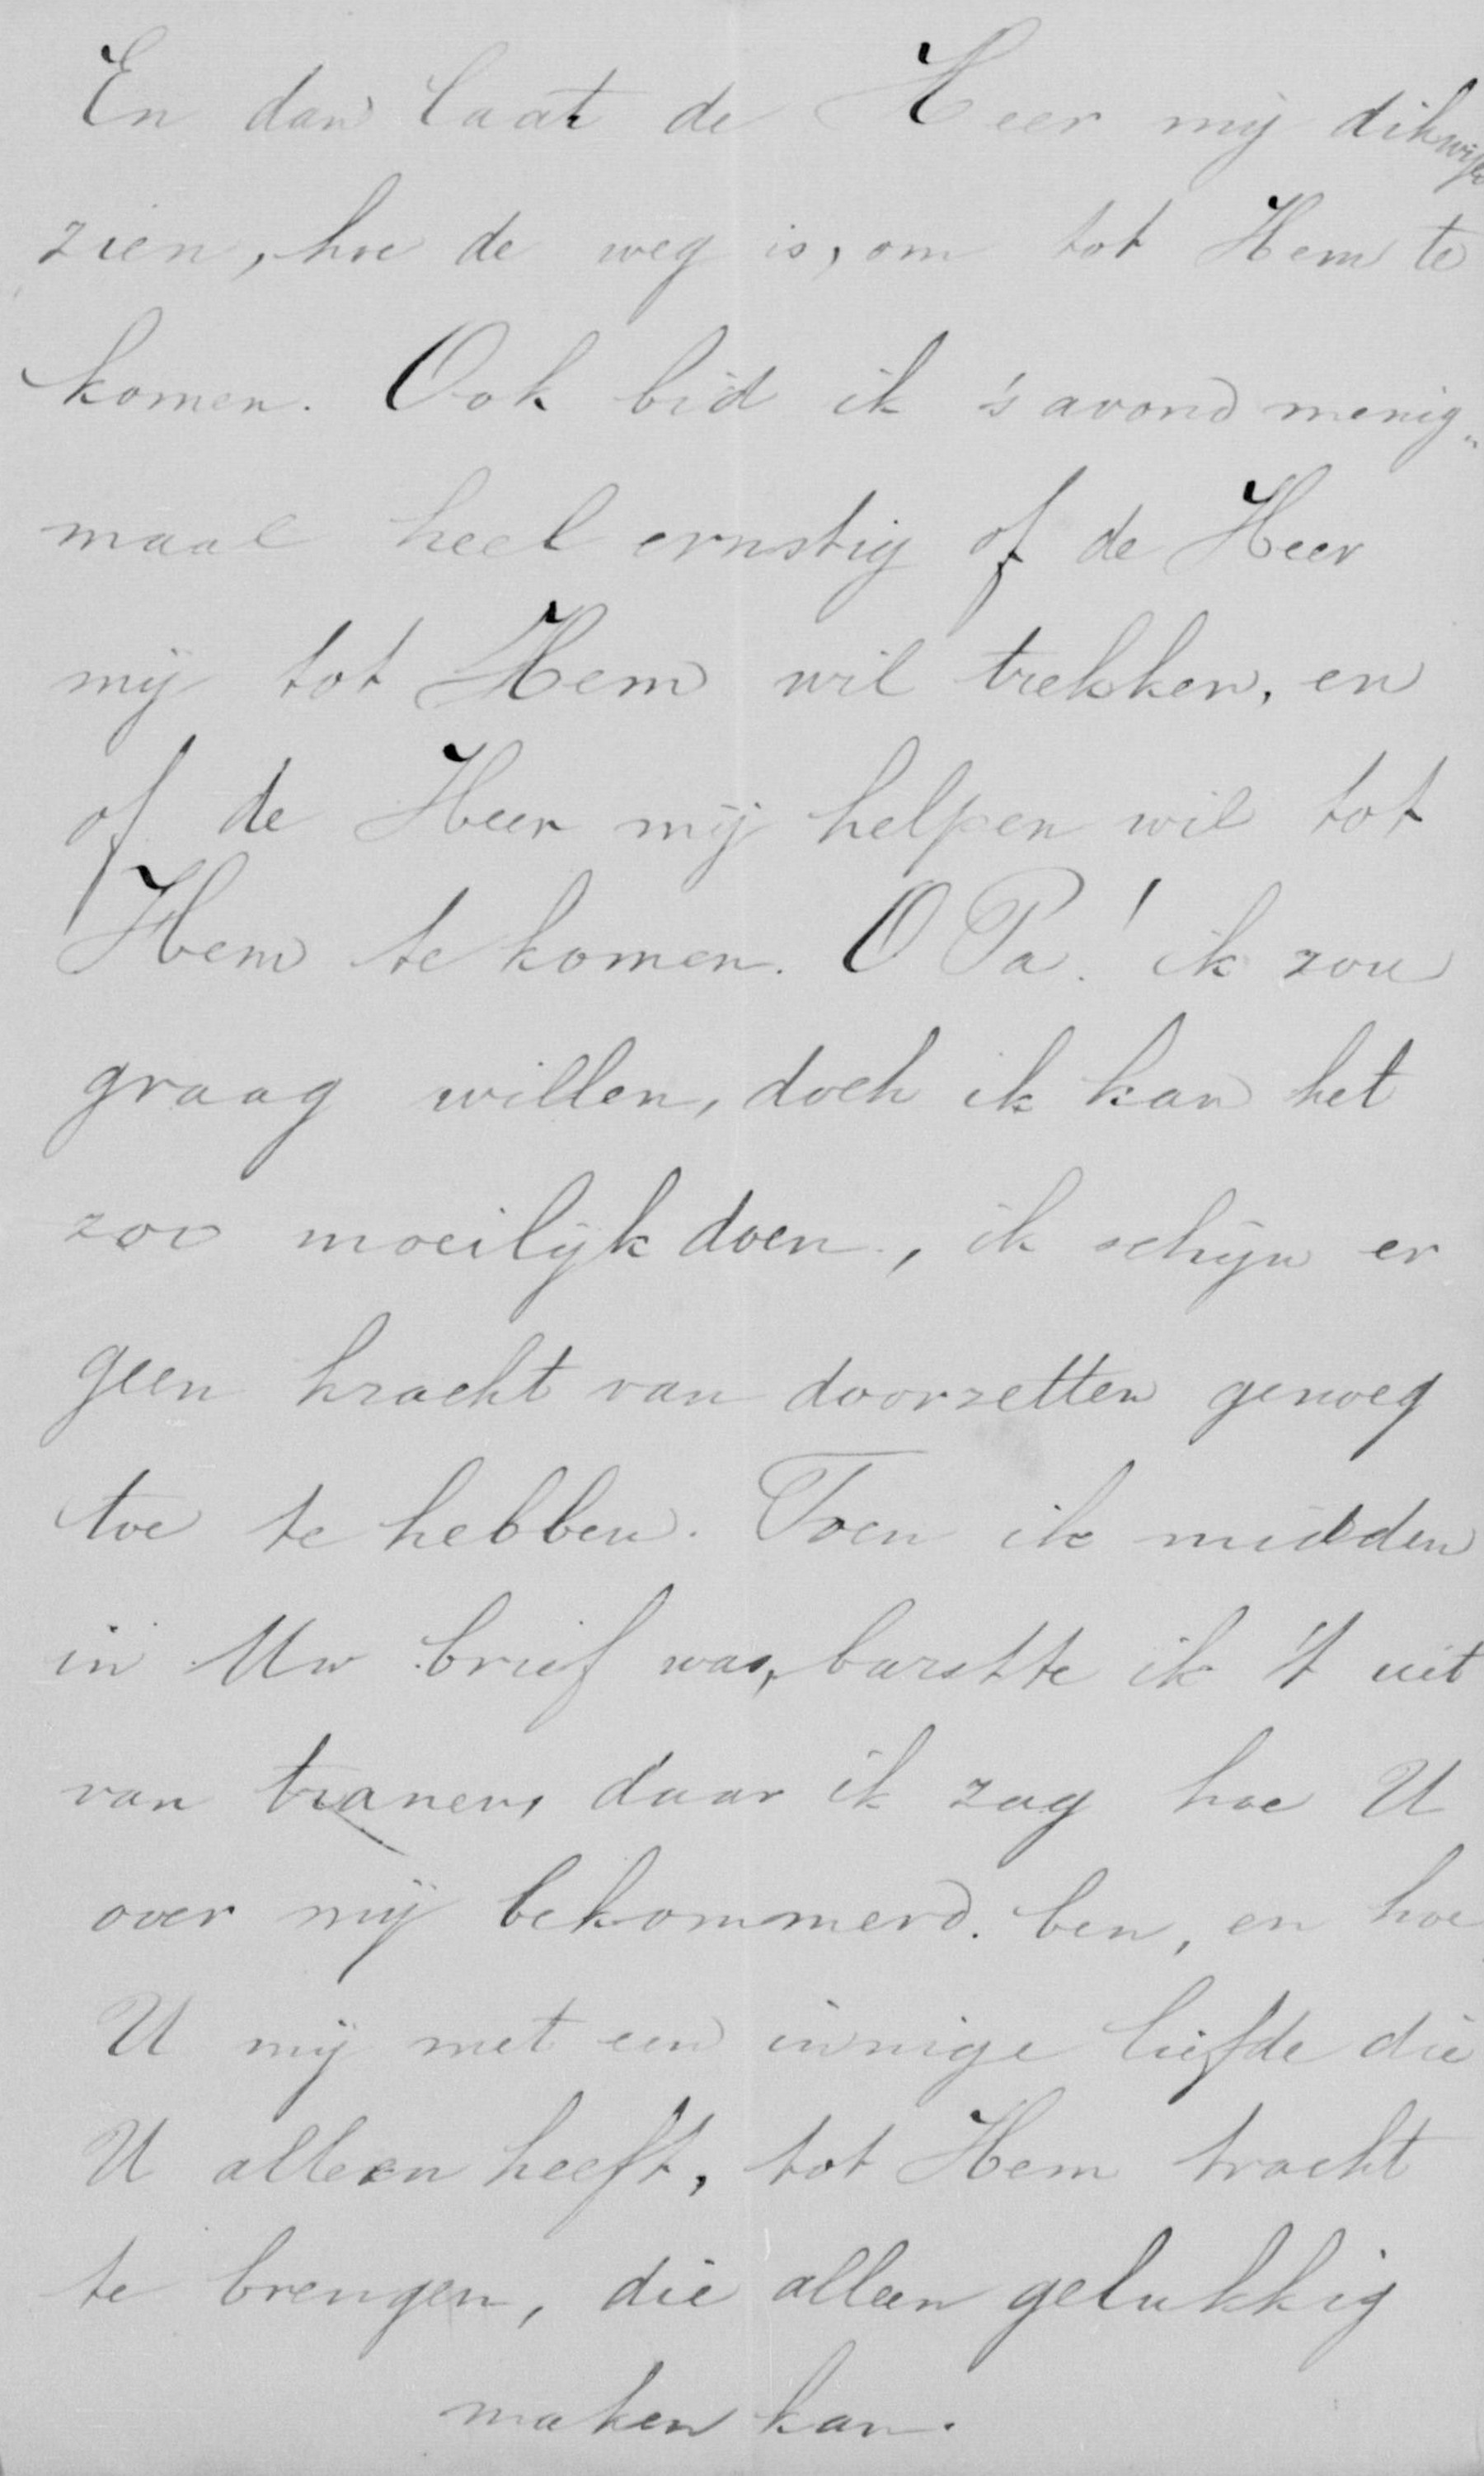 En dan laat de Heer mij dikwijls
zien, hoe de weg is, om tot Hem te
komen. Ook bid ik 's avond menig„
maal heel ernstig of de Heer
mij tot Hem wil trekken, en
of de Heer mij helpen wil tot
Hem te komen. O Pa! ik zou
graag willen, doch ik kan het
zoo moeilijk doen, ik schijn er
geen kracht van doorzetten genoeg
toe te hebben. Toen ik midden
in Uw brief was, barstte ik 't uit
van tranen, daar ik zag hoe U
over mij bekommerd. ben, en hoe
U mij met een innige liefde die
U alleen heeft, tot Hem tracht
te brengen, die alleen gelukkig
maken kan.